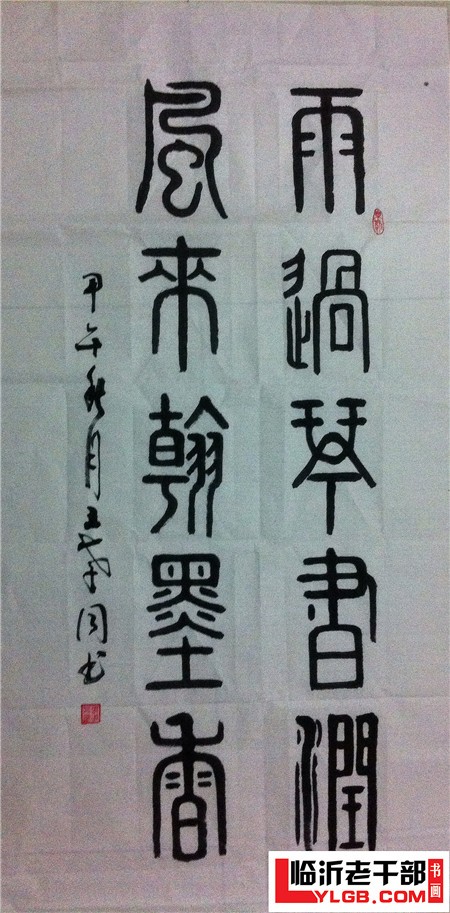 雨過琴書潤
風來翰墨香
甲午秋月
书
临沂老干部
书画
LYLGB.COM